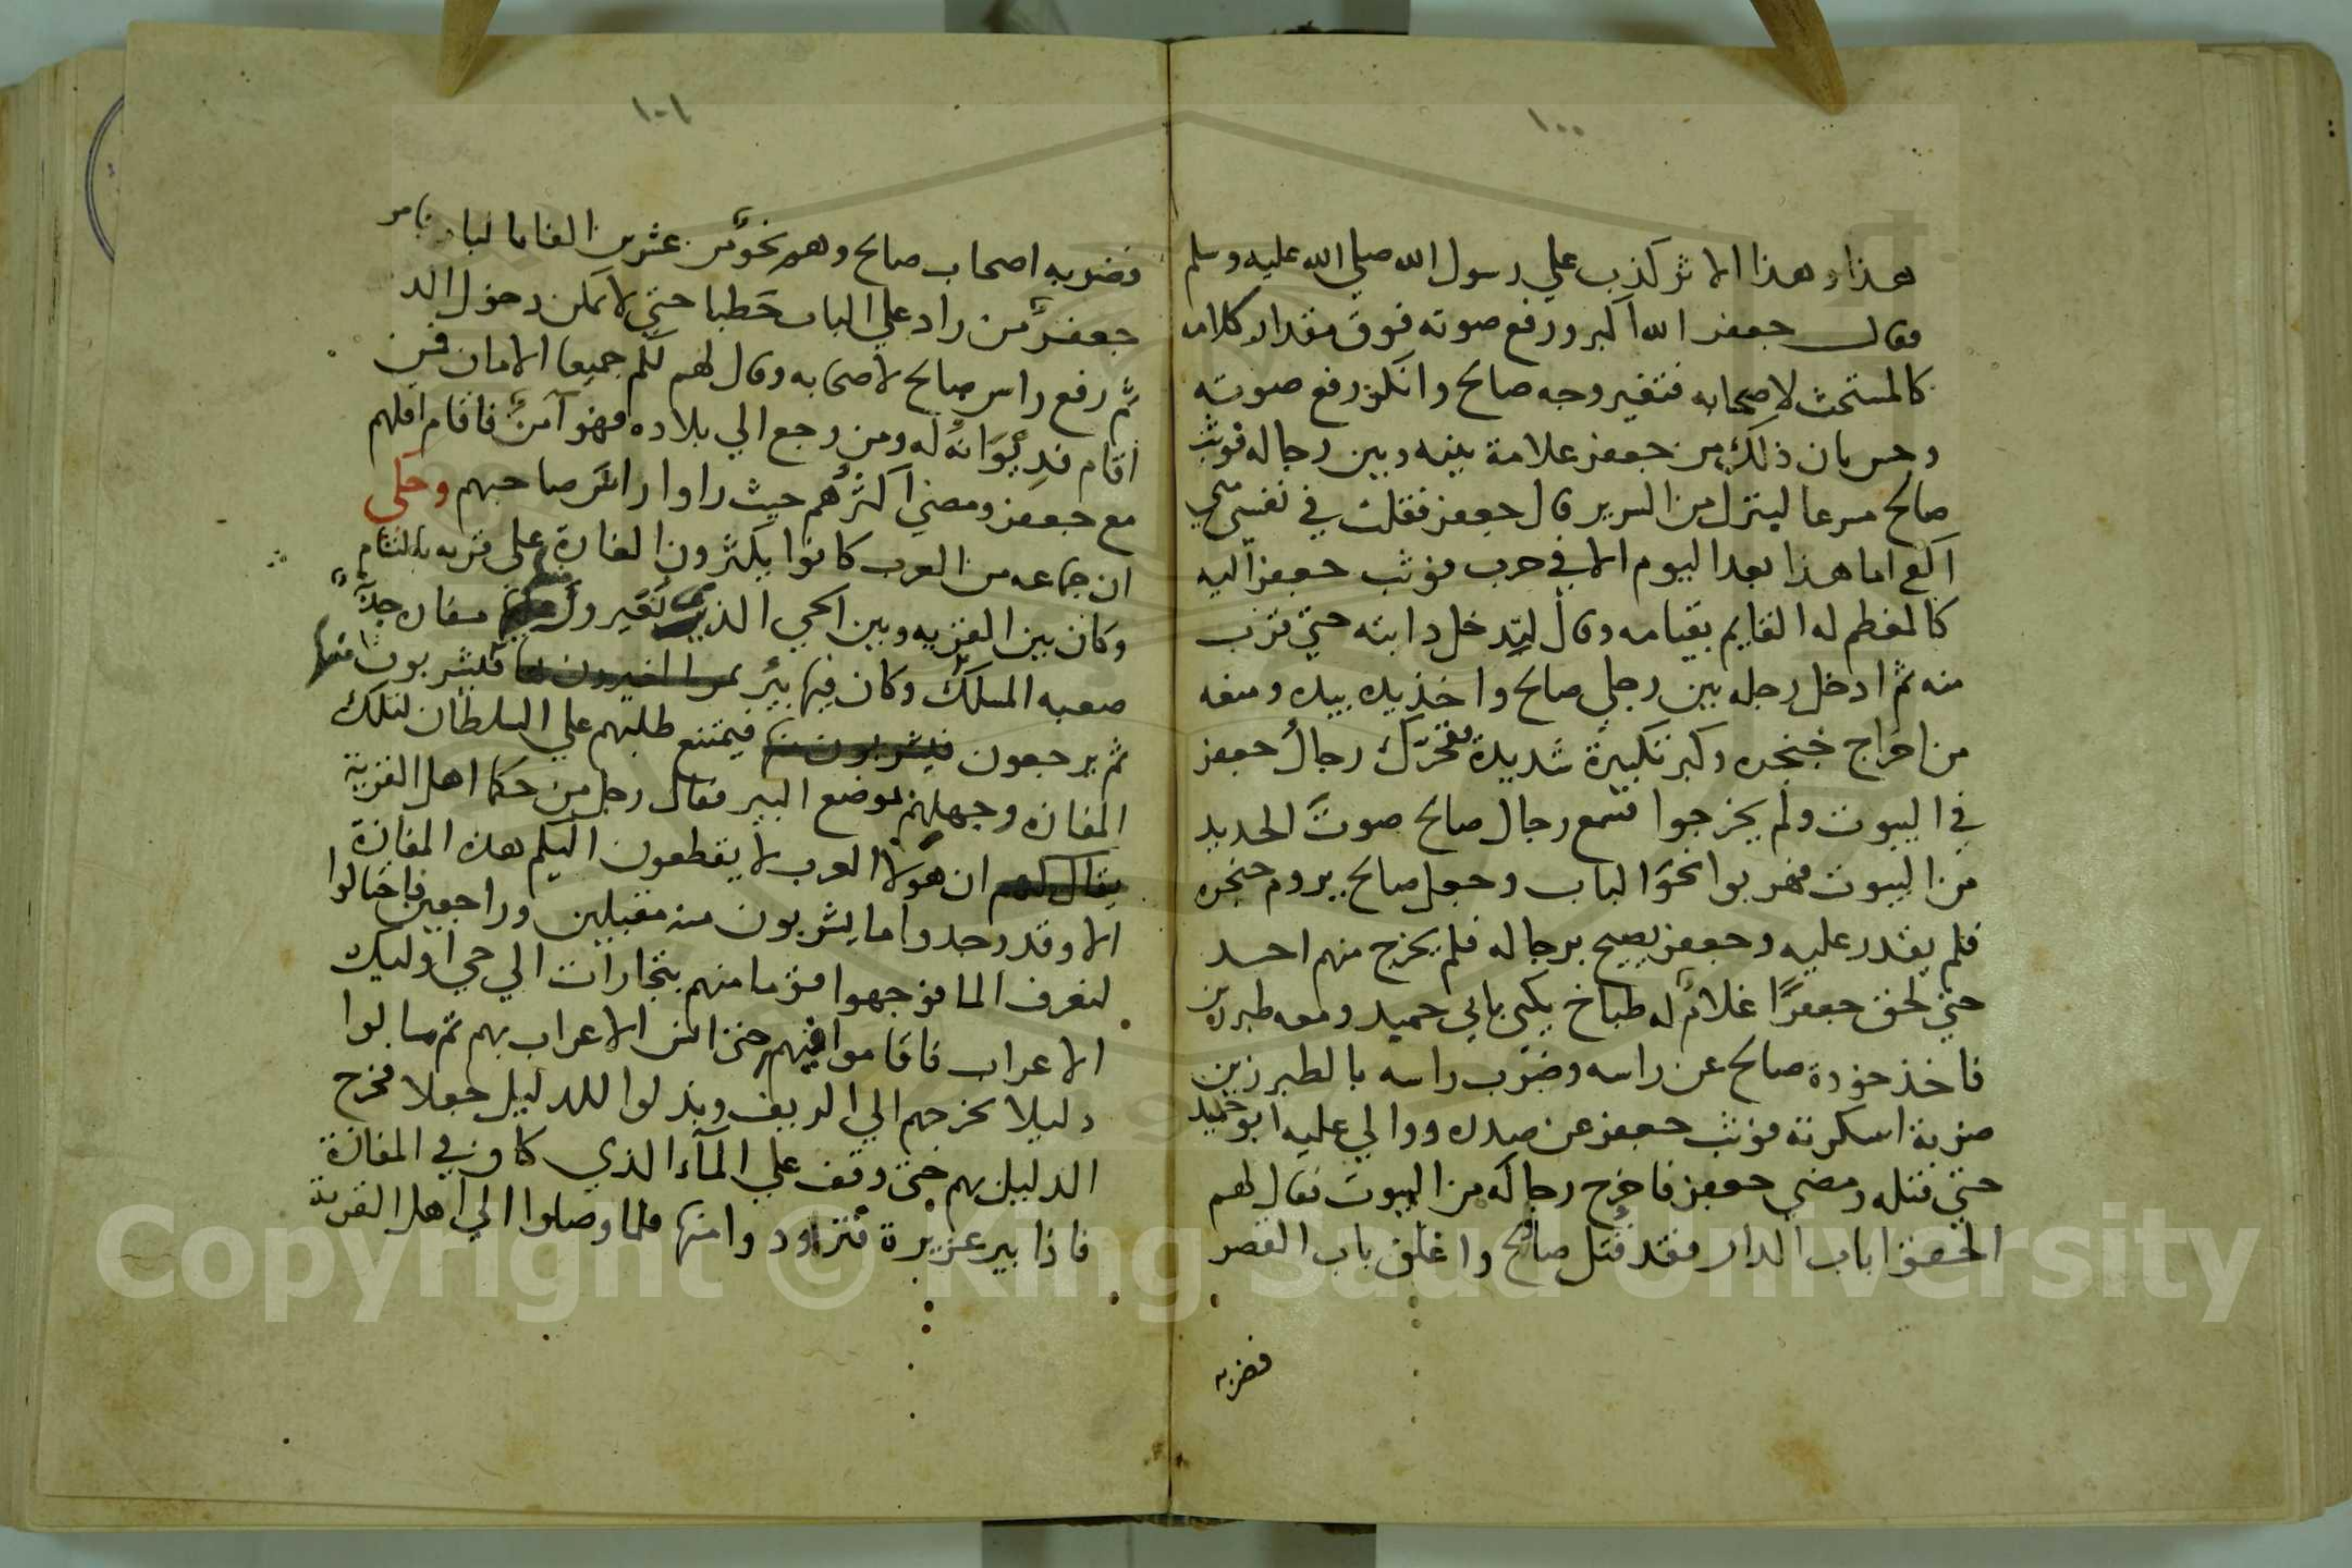 ١٠٠
هذا وهذا الاثر كذب علي رسول الله صلي الله عليه وسلم
فقال جعفر الله اكبر ورفع صوته فوق مقدار كلامه
كالمستحث لاصحابه فتغير وجه صالح وانكر رفع صوته
وحس بان ذلك من جعفر علامة بينه وبين رجاله فوثب
صالح مسرعا لينزل من السرير قال جعفر فقلت في نفسي متي
اكع اما هذا بعد اليوم الا في حرب فوثب جعفر اليه
كالمعظم له القايم بقيامه وقال ليدخل دابته حتي قرب
منه ثم ادخل رجله بين رجلي صالح واخذ يده بيده ومنعه
من اخراج خنجره وكبر تكبيرة شديدة فتحرك رجال جعفر
في البيوت ولم يخرجوا فسمع رجال صالح صوت الحديد
من البيوت فهربوا نحو الباب وجعل صالح يروم خنجره
فلم يقدر عليه وجعفر يصيح برجاله فلم يخرج منهم احد
حتي لحق جعفرا غلام له طباخ يكني بابي حميد ومعه طبرزين
فاخذ خوذة صالح عن راسه وضرب راسه بالطبرزين
ضربة اسكرته فوثب جعفر عن صدره ووالي عليه ابو حميد
حتي قتله ومضي جعفر فاخرج رجاله من البيوت فقال لهم
الحقوا باب الدار فقد قتل صالح واغلق باب القصر
فضربه
١٠١
فضربه اصحاب صالح وهم نحو من عشرين الفا بالباب فامر
جعفر من زاد علي الباب حطبا حتي لا يمكن دخول الدار
ثم رفع راس صالح لاصحابه وقال لهم لكم جميعا الامان فمن
اقام فديوانه له ومن رجع الي بلاده فهو آمن فاقام اقلهم
مع جعفر ومضي اكثرهم حيث راوا راس صاحبهم وحكي
ان جماعه من العرب كانوا يكثرون الغارة علي قريه بالشام
وكان بين القريه وبين الحي الذي تغير مفازه جدا
صعبه المسلك وكان فيها بئر فيشربون منها
ثم يرجعون فيشربون منها فيمتنع طلبهم علي السلطان لتلك
المفازه وجهلهم بموضع البير فقال رجل من حكما اهل القرية
يقال لهم ان هولا العرب لا يقطعون اليكم هذه المفازة
الا وقد وجدوا ما يشربون منه مقبلين وراجعين فاحتالوا
لتعرف الما فوجهوا قوما منهم بتجارات الي حي اوليك
الاعراب فاقاموا فيهم حتي انس الاعراب بهم ثم سالوا
دليلا يخرجهم الي الريف وبذلوا للدليل جعلا فخرج
الدليل بهم حتي وقف علي المآء الذي كان في المفازة
فاذا بير غزيرة فتزودوا منها فلما وصلوا الي اهل القرية
Copyright © King Saud University